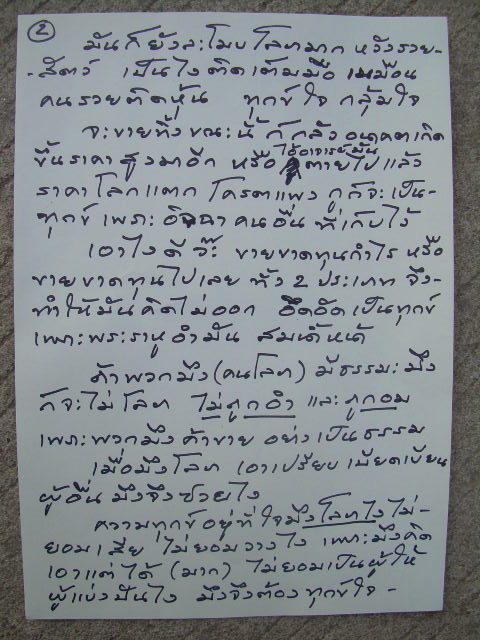 ②
มันก็ยังละโมบโลภมาก หวังรวย-
-สัตว์ เป็นไงติดเต็มมือ เหมือน
คนรวยติดหุ้น ทุกข์ใจ กลุ้มใจ
จะขายทิ้งขณะนี้ ก็กลัว อนาคตเกิด
ขึ้นราคาสูงมาอีก หรือ ไอ้อาจารย์มัน ตายไปแล้ว
ราคาโลกแตก โครตแพง กูก็จะเป็น-
ทุกข์ เพราะ อิจฉาคนอื่น ที่เก็บไว้
เอาไงดีว๊ะ ขายขาดทุนกำไร หรือ
ขายขาดทุนไปเลย ทั้ง 2 ประเภท จึง-
ทำให้มันคิดไม่ออก อึดอัดเป็นทุกข์
เพราะพระราหูอำมัน สมน้ำหน้า
ถ้าพวกมึง (คนโลภ) มีธรรมะ มึง
ก็จะไม่โลภ ไม่ถูกอำ และถูกอม
เพราะพวกมึงค้าขาย อย่างเป็นธรรม
เมื่อมึงโลภ เอาเปรียบ เบียดเบียน
ผู้อื่น มึงจึงซวยไง
ความทุกข์อยู่ที่ใจมึงโลภไง ไม่-
ยอมเสีย ไม่ยอมวางไง เพราะมึงคิด
เอาแต่ได้ (มาก) ไม่ยอมเป็นผู้ให้
ผู้แบ่งปันไง มึงจึงต้องทุกข์ใจ -